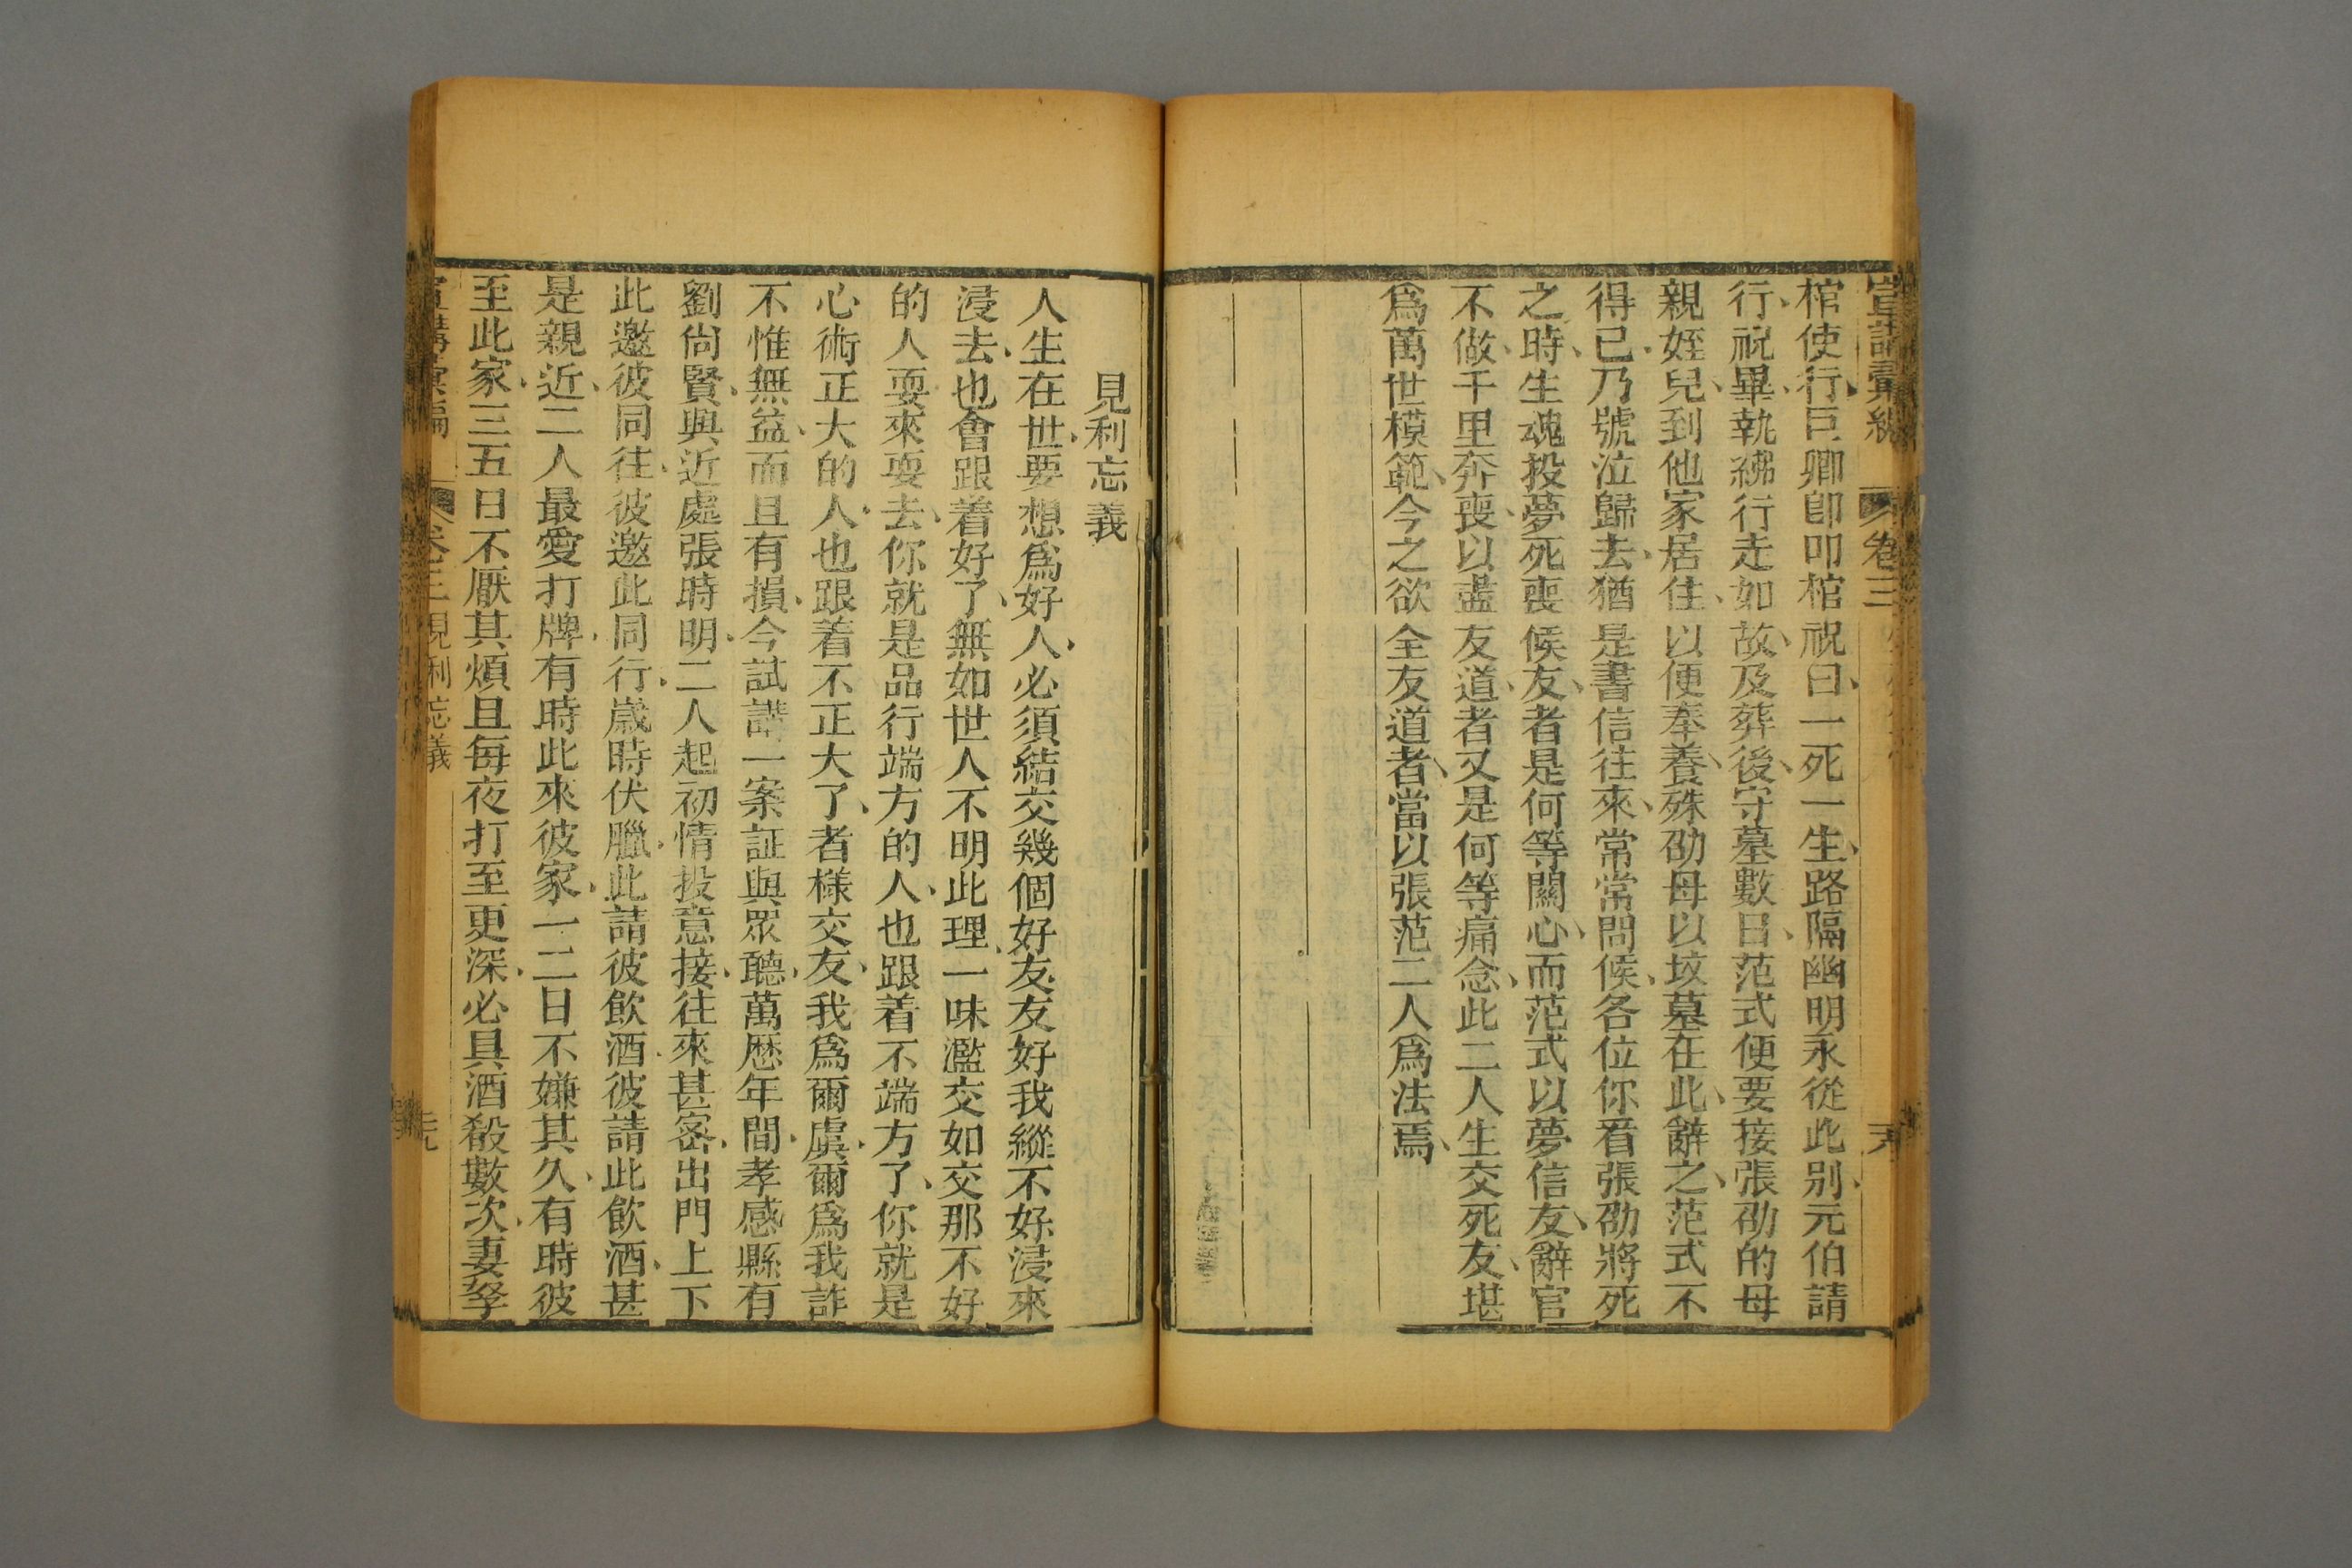 宣講彙編 卷三
棺使行巨卿卽叩棺祝曰、一死一生、路隔幽明永從此别、元伯請
行、祝畢、執紼行走如故、及葬後、守墓數日、范式便要接張劭的母
親姪兒、到他家居住、以便奉養、殊劭母以坟墓在此、辭之、范式不
得已、乃號泣歸去、猶是書信往來、常常問候、各位你看張劭將死
之時、生魂投夢死喪候友、者是何等關心、而范式以夢信友、辭官
不做、千里奔喪、以盡友道、者又是何等痛念、此二人生交死友、堪
爲萬世模範、今之欲全友道者、當以張范二人爲法焉、
見利忘義
人生在世、要想爲好人、必須結交幾個好友友好我縱不好浸來
浸去、也會跟着好了、無如世人不明此理、一味濫交如交那不好
的人耍來耍去、你就是品行端方的人、也跟着不端方了、你就是
心術正大的人、也跟着不正大了、者樣交友、我爲爾虞、爾爲我詐
不惟無益、而且有損、今試講一案証與眾聽、萬歷年間、孝感縣有
劉尙賢、與近處張時明、二人起初情投意接、往來甚密、出門上下
此邀彼同往、彼邀此同行、歲時伏臘、此請彼飲酒、彼請此飲酒、甚
是親近、二人最愛打牌、有時此來彼家、一二日不嫌其久、有時彼
至此家、三五日不厭其煩且每夜打至更深、必具酒殽數次、妻孥
宣講彙編 卷三見利忘義